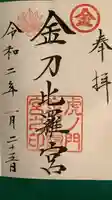 奉拝
金
金刀比羅宮
虎ノ門
令和二年一月二十五日